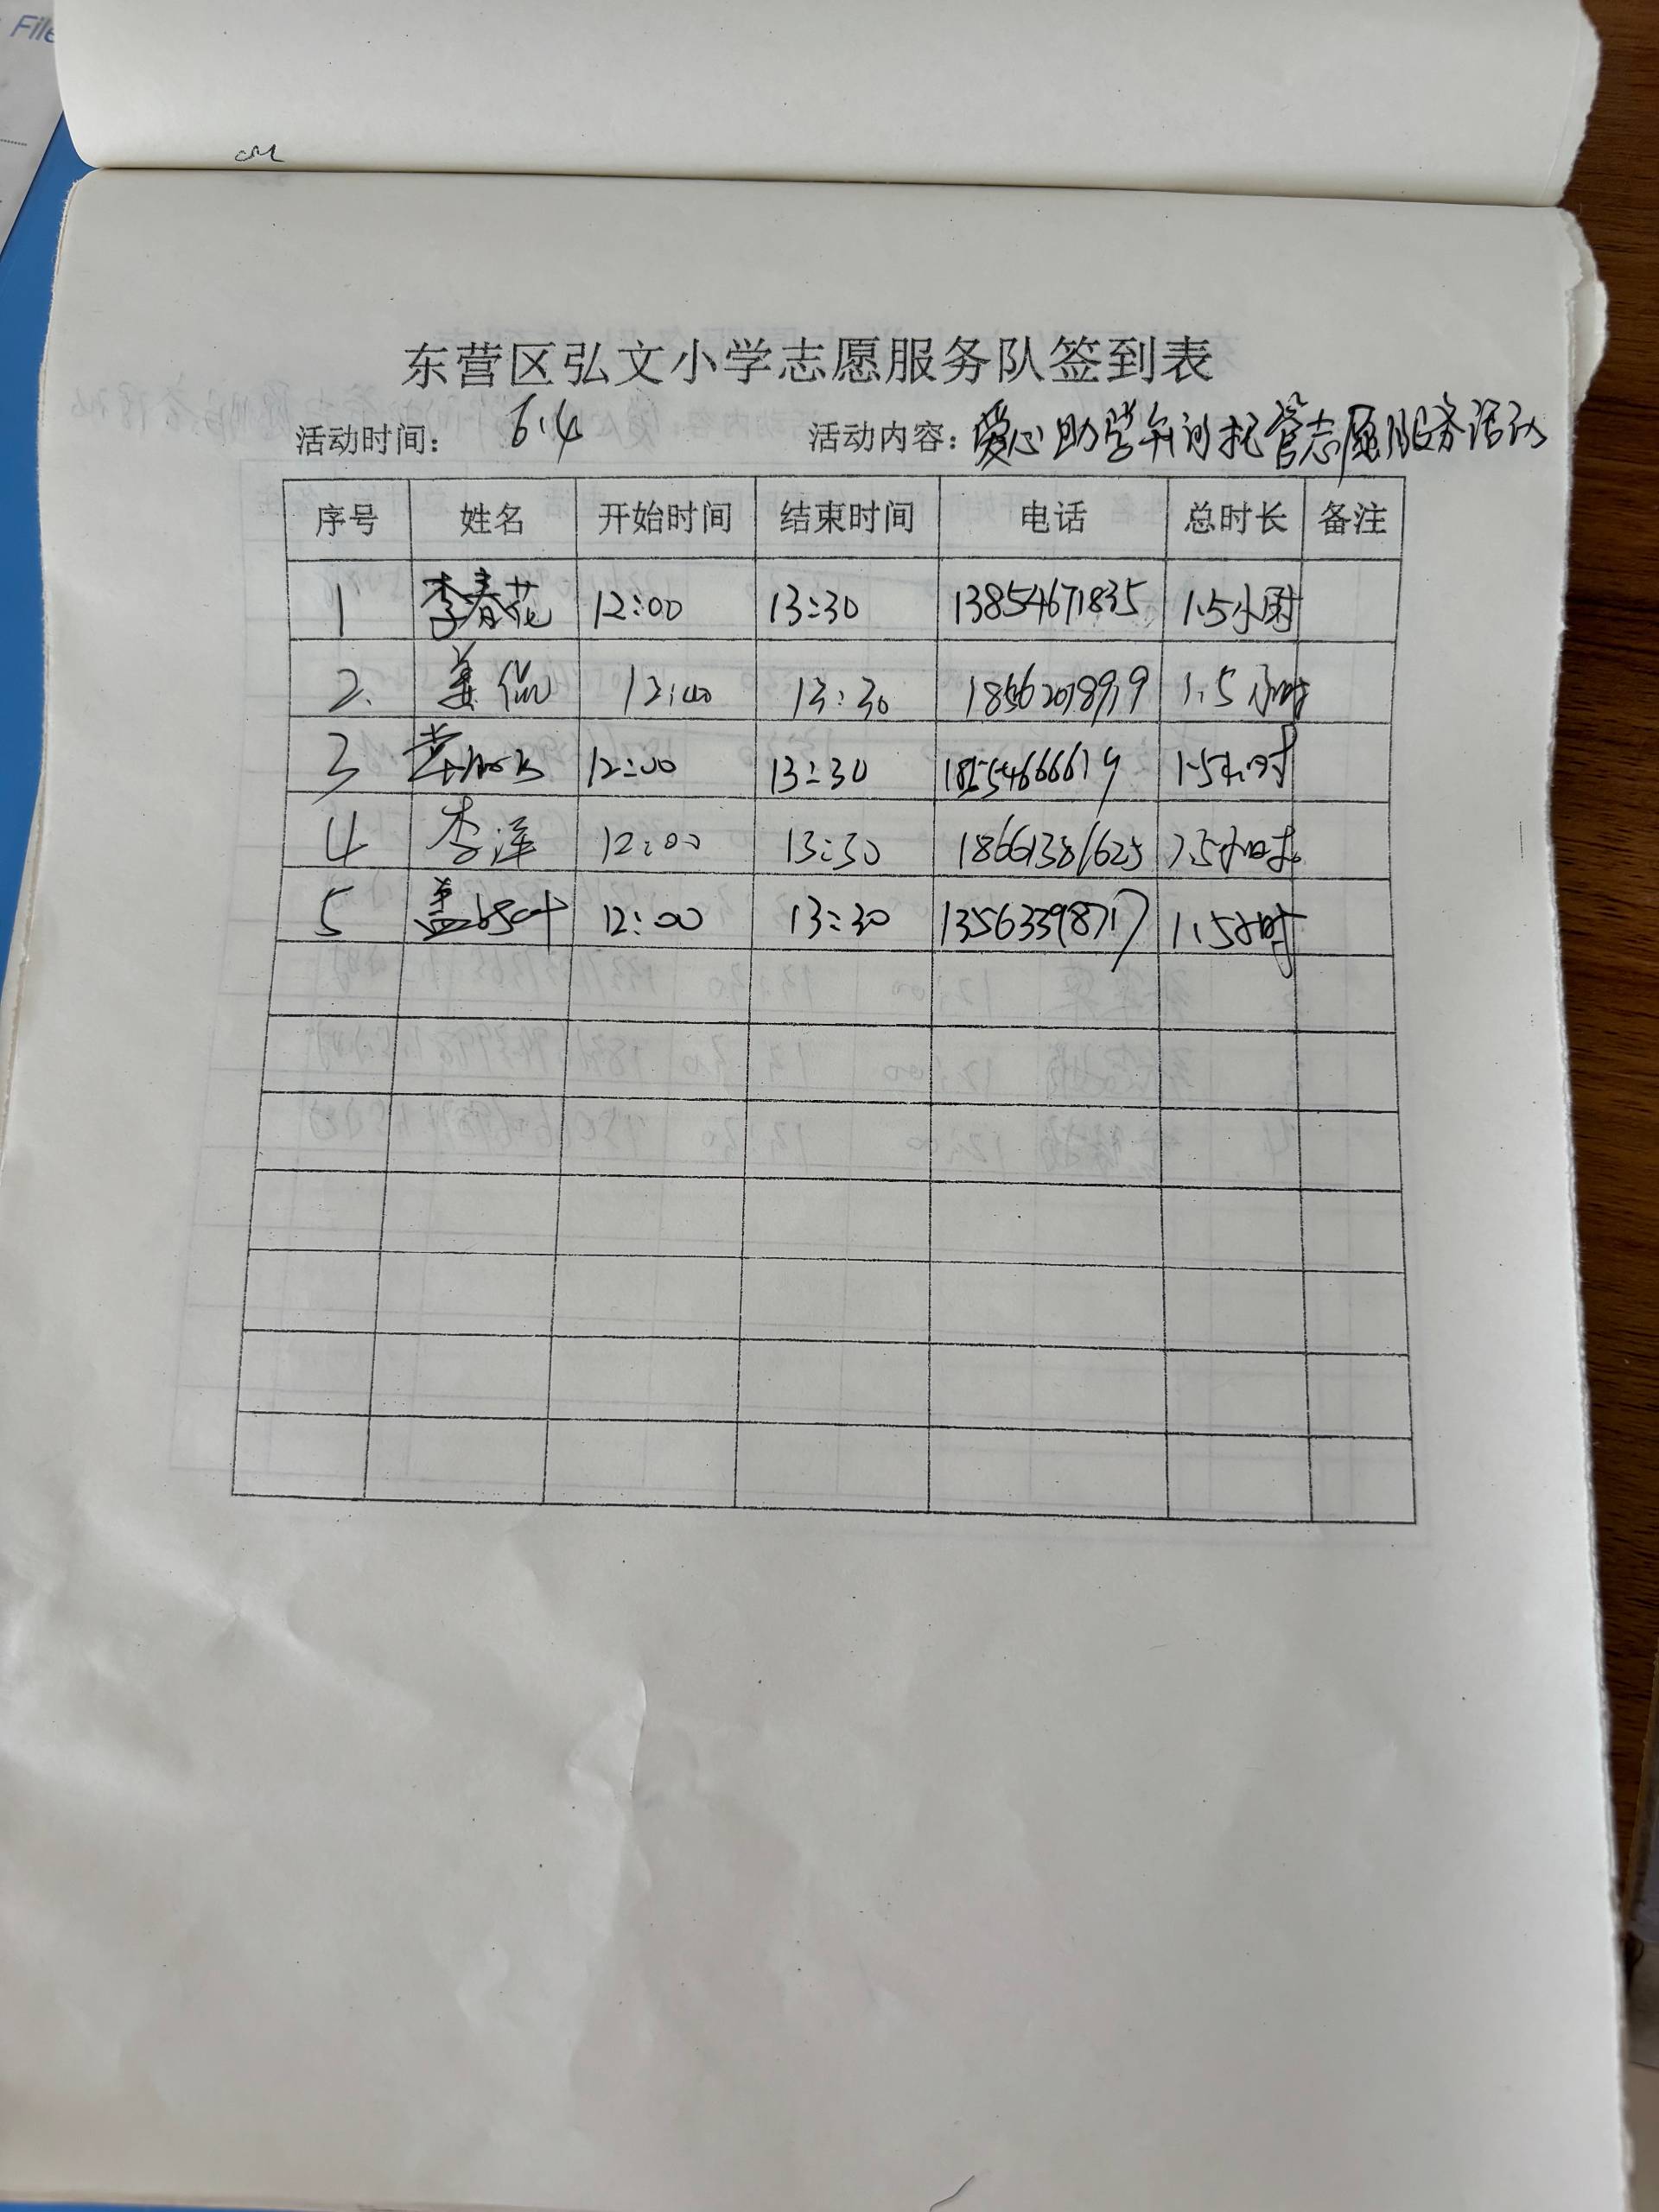 File
东营区弘文小学志愿服务队签到表
活动时间: 6.4 活动内容: 爱心助学午间托管志愿服务活动
序号 姓名 开始时间 结束时间 电话 总时长 备注
1 李春花 12:00 13:30 13854671835 1.5小时
2. 姜侃 12:00 13:30 18562018919 1.5小时
3 12:00 13:30 18554666619 1.5小时
4 李洋 12:00 13:30 18661381625 1.5小时
5 盖 12:00 13:30 13563398717 1.5小时